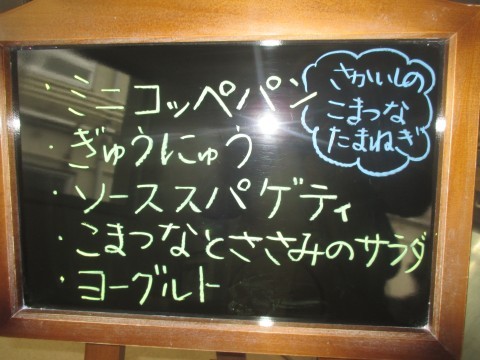 ・ミニコッペパン
・ぎゅうにゅう
・ソーススパゲティ
・こまつなとささみのサラダ
・ヨーグルト
さかいしの
こまつな
たまねぎ